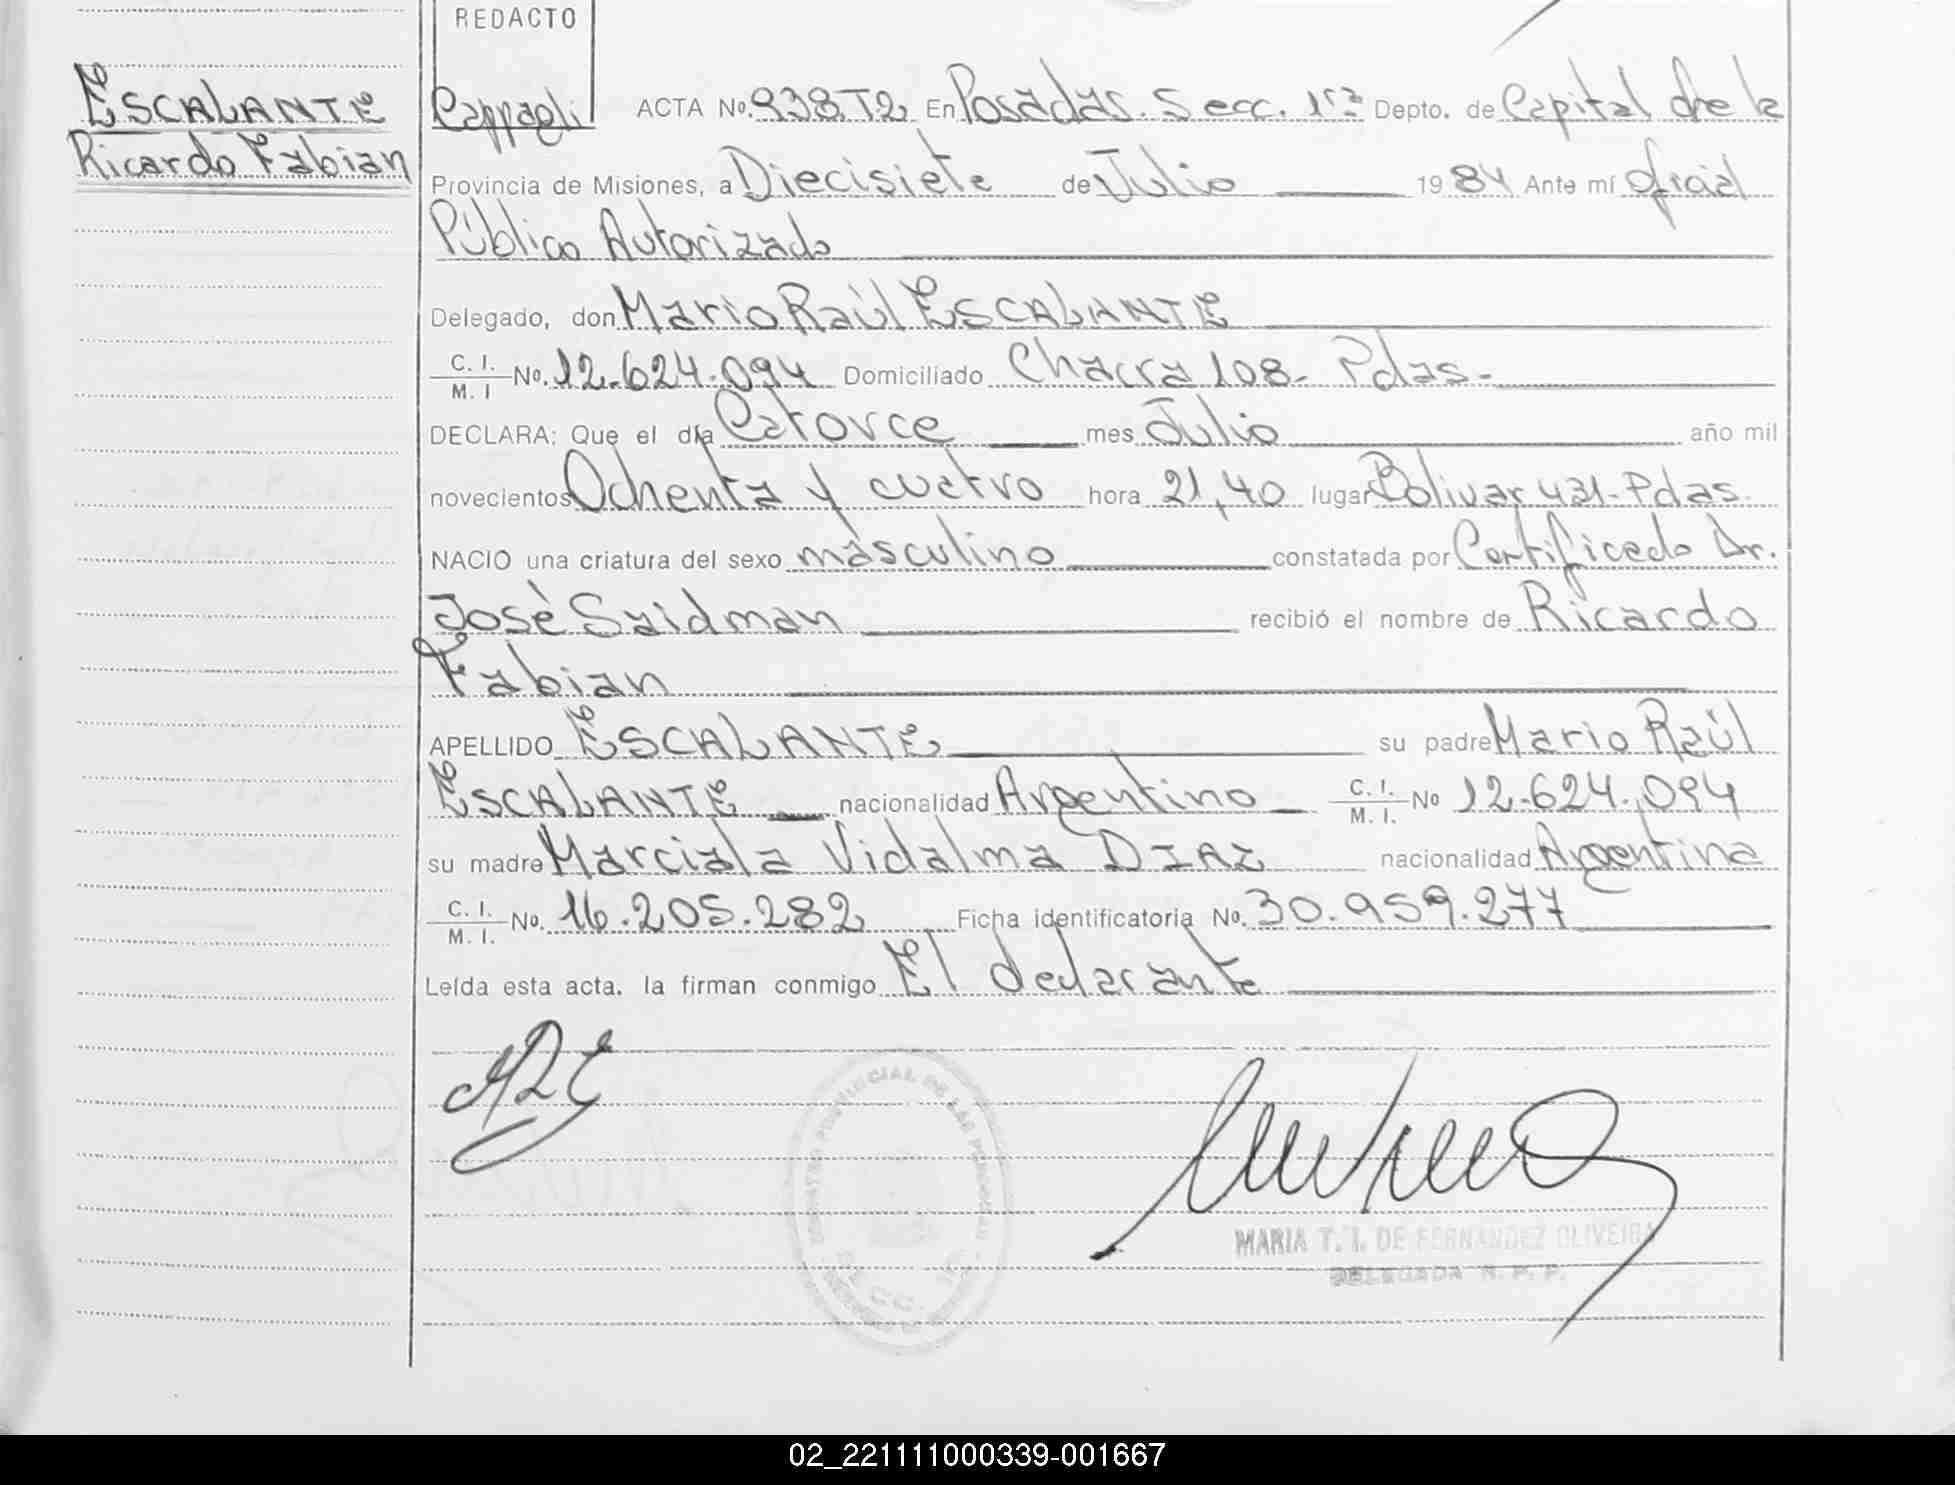 REDACTO
ESCALANTE
Ricardo Fabian
Cappagli
ACTA Nº. 938 T2 En Posadas. Secc. 1ra Depto. de Capital de la
Provincia de Misiones, a Diecisiete de Julio 1984 Ante mí oficial
Público Autorizado
Delegado, don Mario Raúl ESCALANTE
C. I.
M. I No. 12.624.094 Domiciliado Chacra 108- Pdas-
DECLARA: Que el día Catorce mes Julio año mil
novecientos Ochenta y cuatro hora 21,40 lugar Bolivar 421-Pdas.
NACIO una criatura del sexo masculino constatada por Certificado Dr.
José Saidman recibió el nombre de Ricardo
Fabian
APELLIDO ESCALANTE su padre Mario Raúl
ESCALANTE nacionalidad Argentino C. I.
M. I. Nº 12.624.094
su madre Marciala Vidalma DIAZ nacionalidad Argentina
C. I.
M. I. No. 16.205.282 Ficha identificatoria No. 30.959.277
Leída esta acta, la firman conmigo El declarante
REGISTRO PROVINCIAL DE LAS PERSONAS
SECC. 1ra
MARIA T. I. DE FERNANDEZ OLIVEIRA
DELEGADA R. P. P.
02_221111000339-001667